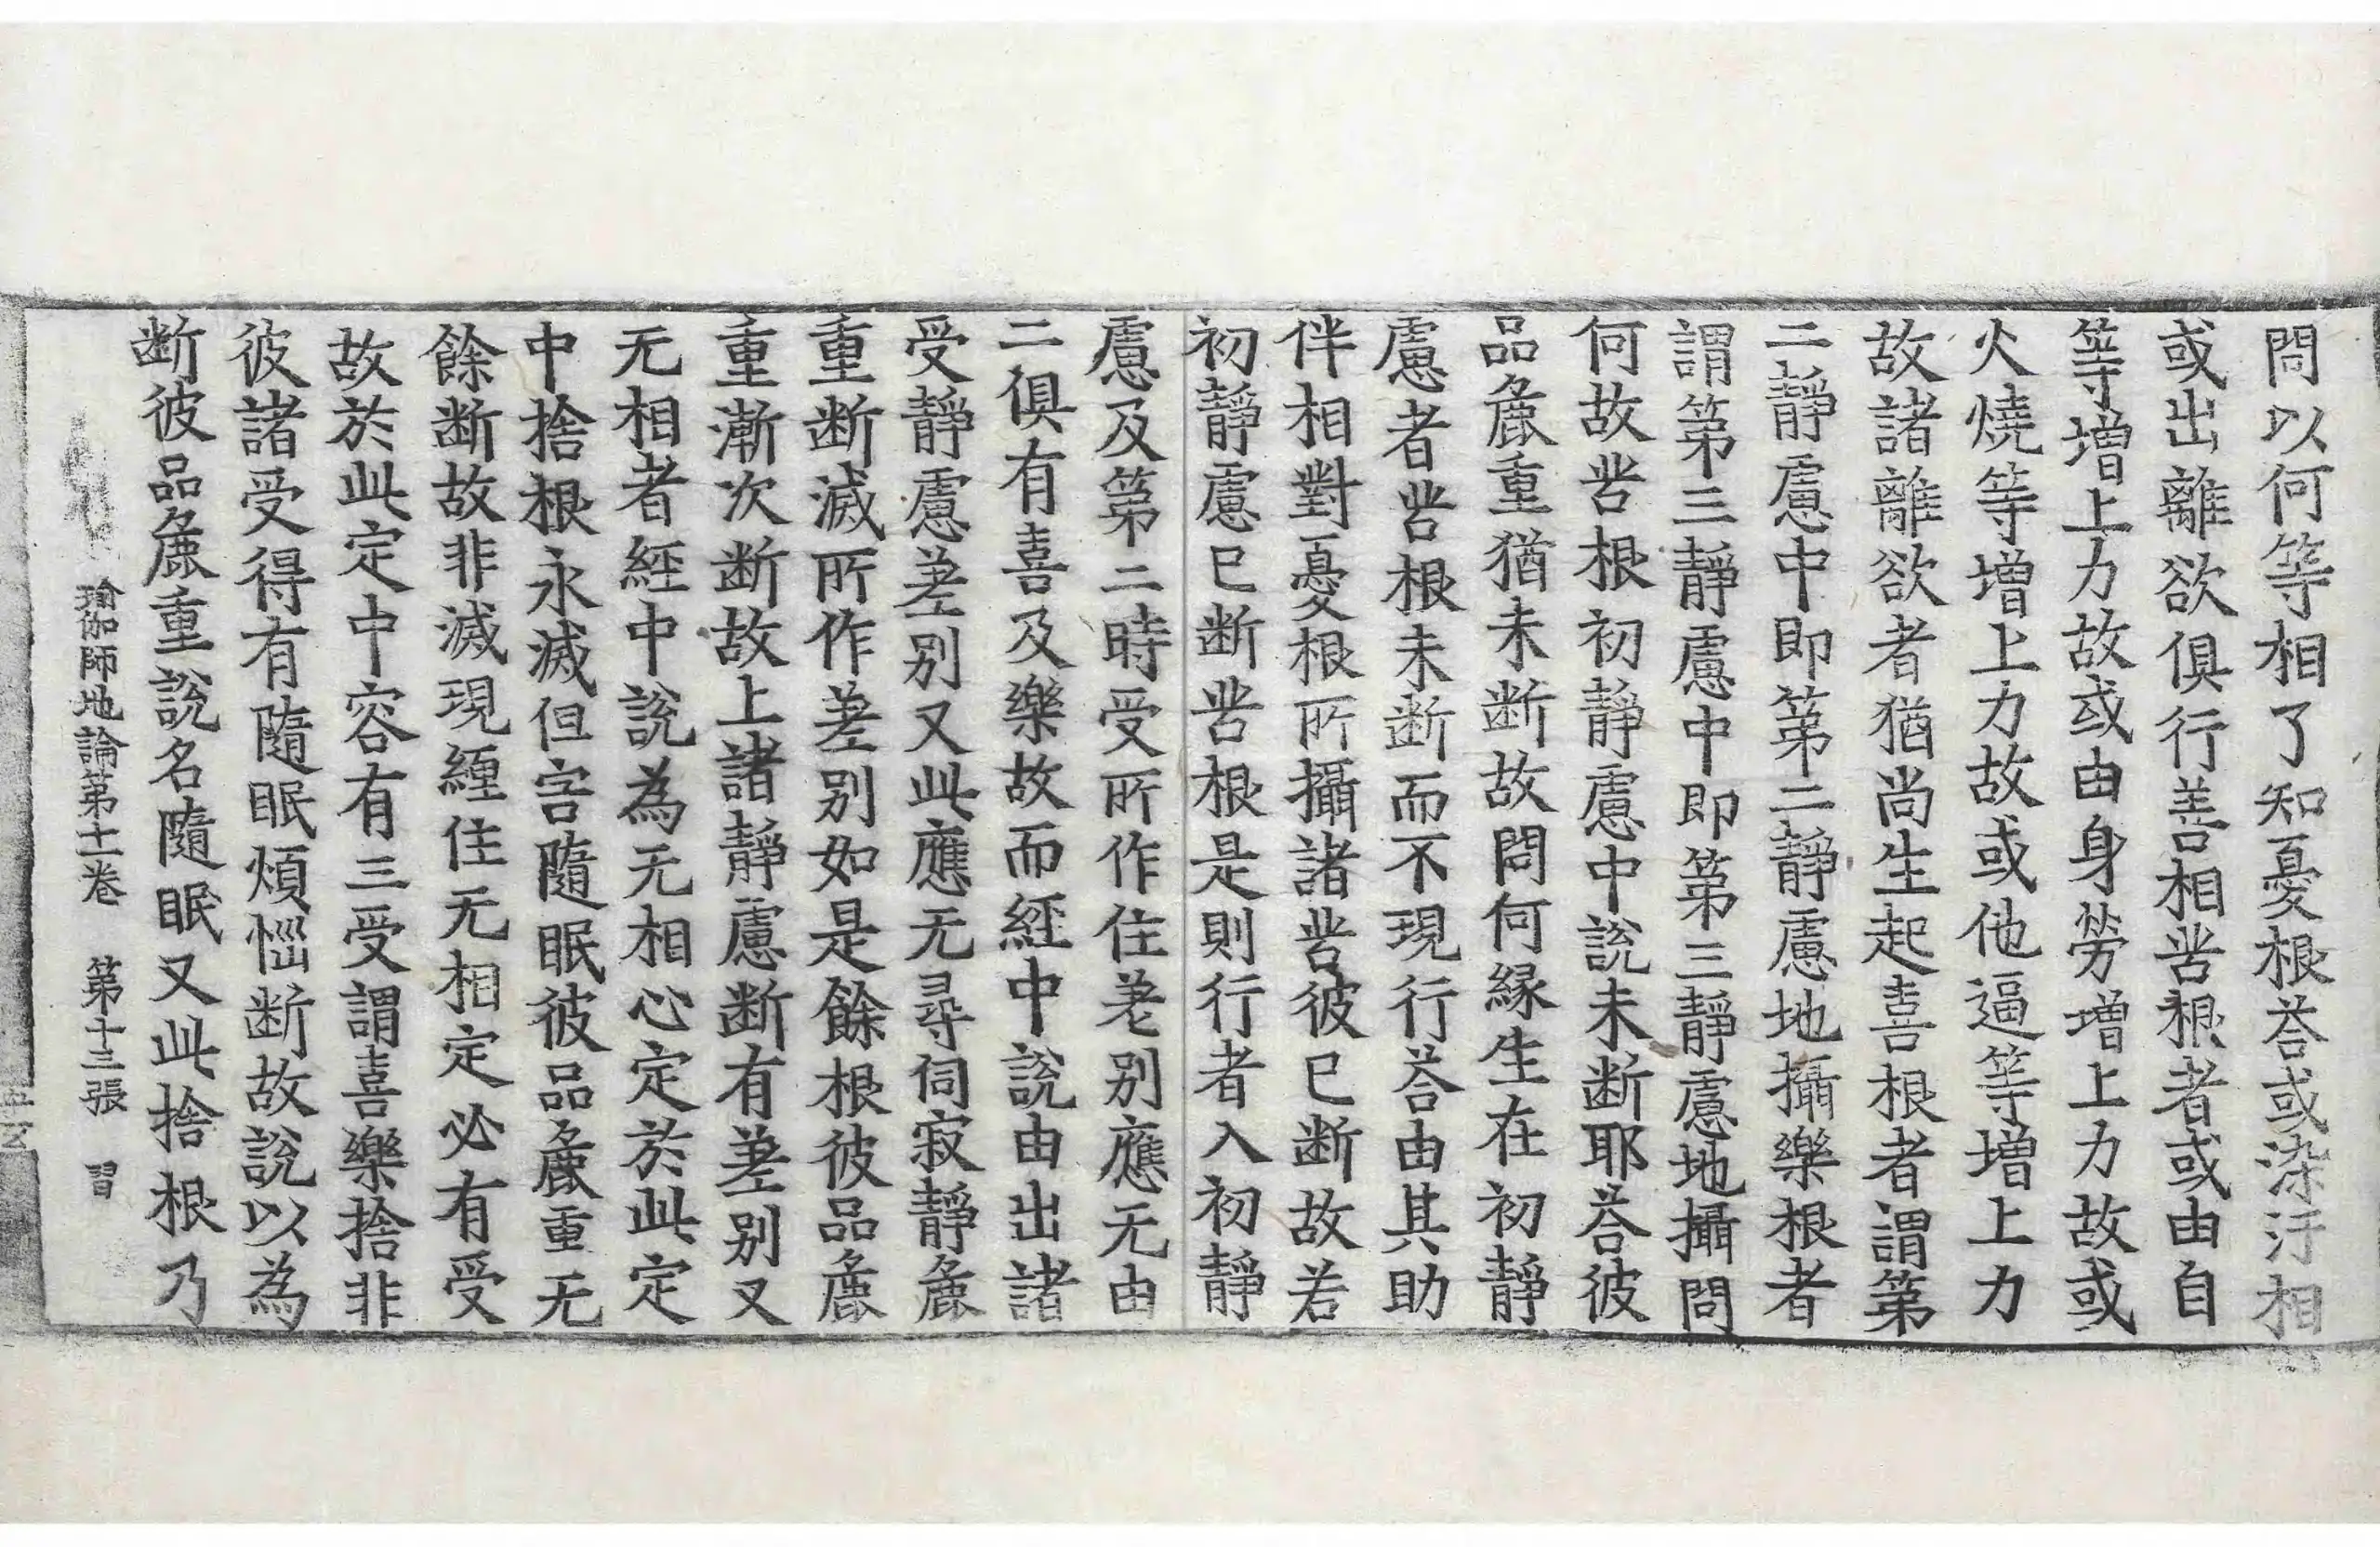 問以何等相了知憂根荅或染汙相
或出離欲俱行善相苦根者或由自
等增上力故或由身勞增上力故或
火燒等增上力故或他逼等增上力
故諸離欲者猶尚生起喜根者謂第
二靜慮中即第二靜慮地攝樂根者
謂第三靜慮中即第三靜慮地攝問
何故苦根初靜慮中說未断耶荅彼
品麁重猶未断故問何緣生在初靜
慮者苦根未断而不現行荅由其助
伴相對憂根所攝諸苦彼已断故若
初靜慮已断苦根是則行者入初靜
慮及第二時受所作住差別應无由
二俱有喜及樂故而經中說由出諸
受靜慮差別又此應无尋伺寂靜麁
重断滅所作差別如是餘根彼品麁
重漸次断故上諸靜慮断有差別又
无相者經中說為无相心定於此定
中捨根永滅但害隨眠彼品麁重无
餘断故非滅現纏住无相定必有受
故於此定中容有三受謂喜樂捨非
彼諸受得有隨眠煩惱断故說以為
断彼品麁重說名隨眠又此捨根乃
瑜伽師地論第十一卷 第十三張 習